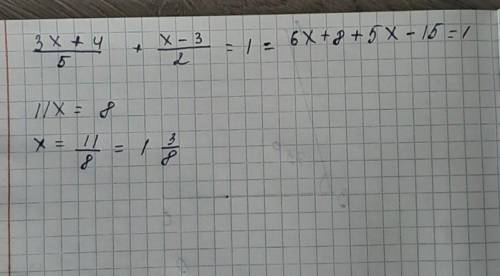 (3x+4)/5 + (x-3)/2 = 1 = 6x+8+5x-15=1
11x = 8
x = 11/8 = 1 3/8